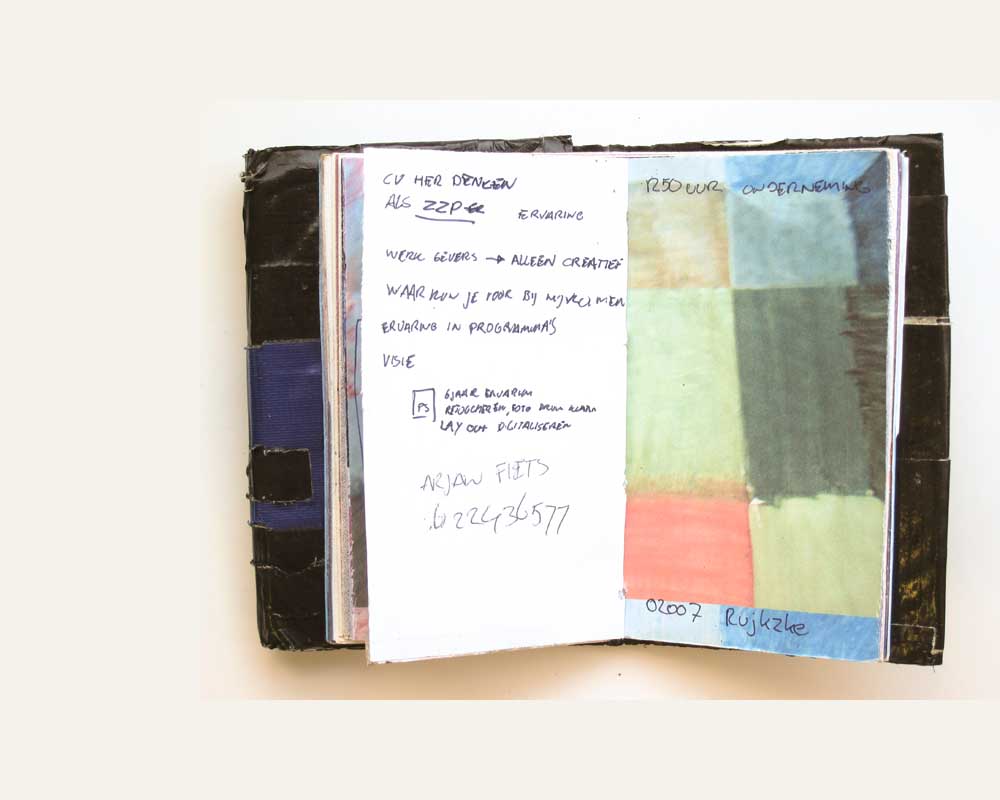 CV HER DENKEN
ALS ZZP ERVARING
WERK GEVERS → ALLEEN CREATIEF
WAAR KUN JE VOOR BIJ MIJ
ERVARING IN PROGRAMMA'S
VISIE
PS
6 JAAR ERVARING
RETOUCHEREN, FOTO
LAY OUT DIGITALISEREN
ARJAN FIETS
622436577
1250 UUR ONDERNEMING
02007 Rujkzke